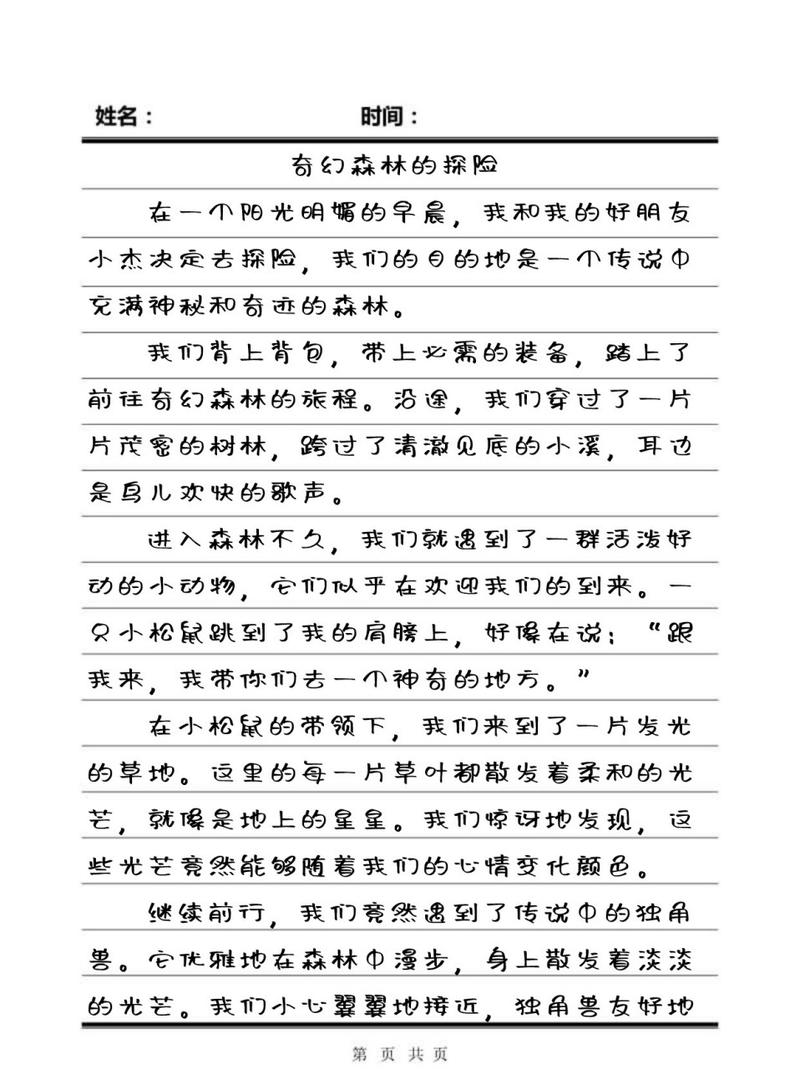 姓名： 时间：
奇幻森林的探险
在一个阳光明媚的早晨，我和我的好朋友
小杰决定去探险，我们的目的地是一个传说中
充满神秘和奇迹的森林。
我们背上背包，带上必需的装备，踏上了
前往奇幻森林的旅程。沿途，我们穿过了一片
片茂密的树林，跨过了清澈见底的小溪，耳边
是鸟儿欢快的歌声。
进入森林不久，我们就遇到了一群活泼好
动的小动物，它们似乎在欢迎我们的到来。一
只小松鼠跳到了我的肩膀上，好像在说：“跟
我来，我带你们去一个神奇的地方。”
在小松鼠的带领下，我们来到了一片发光
的草地。这里的每一片草叶都散发着柔和的光
芒，就像是地上的星星。我们惊讶地发现，这
些光芒竟然能够随着我们的心情变化颜色。
继续前行，我们竟然遇到了传说中的独角
兽。它优雅地在森林中漫步，身上散发着淡淡
的光芒。我们小心翼翼地接近，独角兽友好地
第 页 共 页